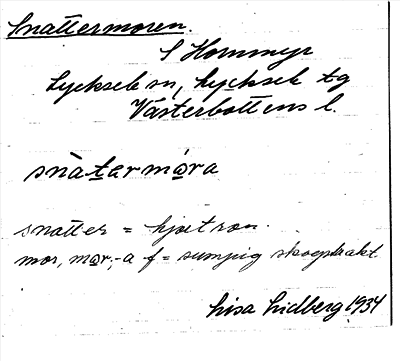 Snattermoren.
S Hornmyr
Lycksele sn, Lycksele tg
Västerbottens l.
snàtarmóra
snatter = hjortron.
mor, mor, -a f = sumpig skogstrakt
Lisa Lidberg 1934